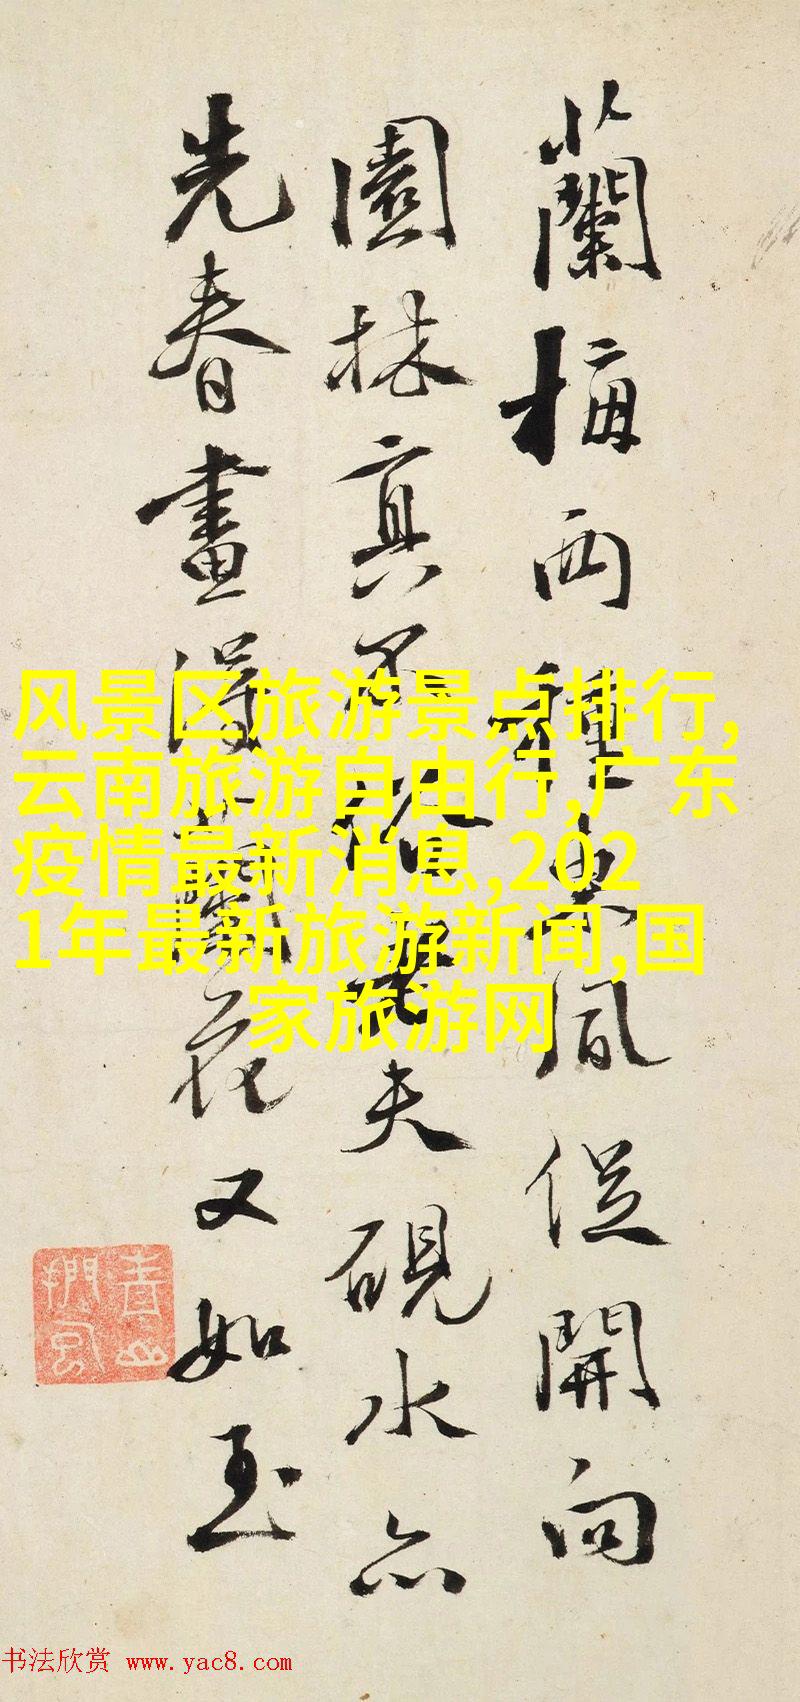 蘭梅两種東風促開向
園林真不俗老夫硯水亦
先春畫得蘭花又如玉
风景区旅游景点排行,
云南旅游自由行,广东
疫情最新消息,202
1年最新旅游新闻,国
家旅游网
书法欣赏 www.yac8.com